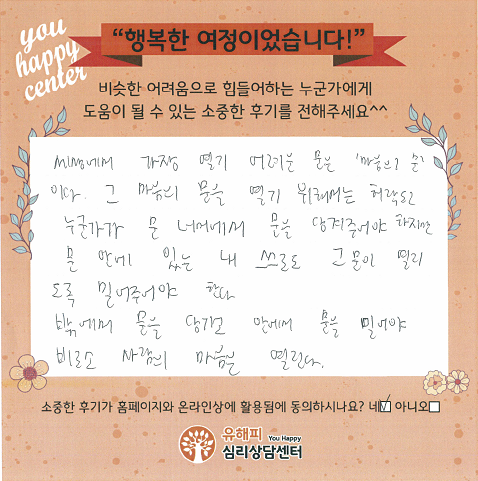 you
happy
center
“행복한 여정이었습니다!”
비슷한 어려움으로 힘들어하는 누군가에게
도움이 될 수 있는 소중한 후기를 전해주세요^^
세상에서 가장 열기 어려운 문은 '마음의 문'
이다. 그 마음의 문을 열기 위해서는 허락된
누군가가 문 너머에서 문을 당겨주어야 하지만
문 안에 있는 내 스스로도 그 문이 열리
도록 밀어주어야 한다
밖에서 문을 당기고 안에서 문을 밀어야
비로소 사람의 마음은 열린다.
소중한 후기가 홈페이지와 온라인상에 활용됨에 동의하시나요? 네☑ 아니오☐
유해피 You Happy
심리상담센터